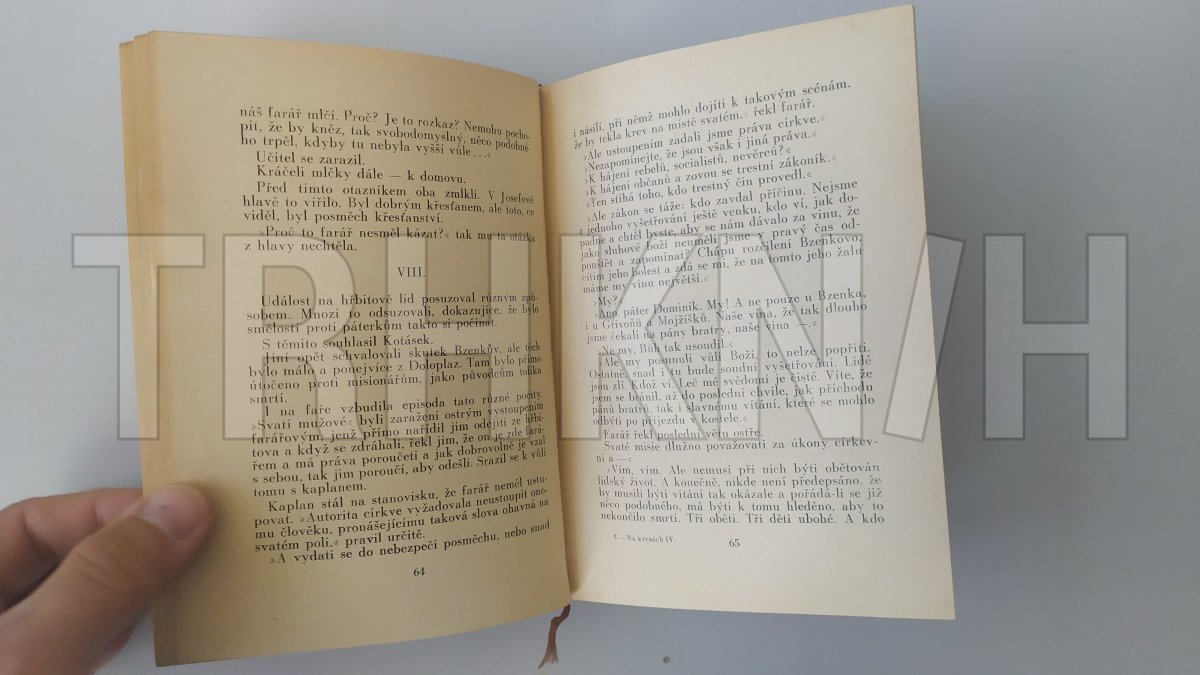 náš farář mlčí. Proč? Je to rozkaz? Nemohu pocho-
pit, že by kněz, tak svobodomyslný, něco podobné-
ho trpěl, kdyby tu nebyla vyšší vůle...«
Učitel se zarazil.
Kráčeli mlčky dále — k domovu.
Před tímto otazníkem oba zmlkli. V Josefově
hlavě to vířilo. Byl dobrým křesťanem, ale toto, co
viděl, byl posměch křesťanství.
»Proč to farář nesměl kázat?« tak mu ta otázka
z hlavy nechtěla.
VIII.
Událost na hřbitově lid posuzoval různým způ-
sobem. Mnozí to odsuzovali, dokazujíce, že bylo
smělostí proti páterkům takto si počínat.
S těmito souhlasil Kotásek.
Jiní opět schvalovali skutek Bzenkův, ale těch
bylo málo a ponejvíce z Doloplaz. Tam bylo přímo
útočeno proti misionářům, jako původcům tolika
smrtí.
I na faře vzbudila episoda tato různé pocity.
»Svatí mužové« byli zaraženi ostrým vystoupením
farářovým, jenž přímo nařídil jim odejíti ze hřbi-
tova a když se zdráhali, řekl jim, že on je zde fará-
řem a má práva poroučeti a jak dobrovolně je vzal
s sebou, tak jim poroučí, aby odešli. Srazil se k vůli
tomu s kaplanem.
Kaplan stál na stanovisku, že farář neměl ustu-
povat. »Autorita církve vyžadovala neustoupit ono-
mu člověku, pronášejícímu taková slova ohavná na
svatém poli,« pravil určitě.
»A vydati se do nebezpečí posměchu, nebo snad
64
i násilí, při němž mohlo dojíti k takovým scénám,
že by tekla krev na místě svatém,« řekl farář.
»Ale ustoupením zadali jsme práva církve.«
»Nezapomínejte, že jsou však i jiná práva.«
»K hájení rebelů, socialistů, nevěrců?«
»K hájení občanů a zovou se trestní zákoník.«
»Ten stíhá toho, kdo trestný čin provedl.«
»Ale zákon se táže: kdo zavdal příčinu. Nejsme
z jednoho vyšetřování ještě venku, kdo ví, jak do-
padne a chtěl byste, aby se nám dávalo za vinu, že
jako sluhové boží neuměli jsme v pravý čas od-
pouštět a zapomínat? Chápu rozčilení Bzenkovo,
cítím jeho bolest a zdá se mi, že na tomto jeho žalu
máme my vinu největší.«
»My?«
»Ano, páter Dominik. My! A ne pouze u Bzenka,
i u Grivoňů a Mojžíšků. Naše vina, že tak dlouho
jsme čekali na pány bratry, naše vina —.«
»Ne my, Bůh tak usoudil.«
»Ale my posunuli vůli Boží, to nelze popříti.
Ostatně, snad i tu bude soudní vyšetřování. Lidé
jsou zlí. Kdož ví. Leč mé svědomí je čisté. Víte, že
jsem se bránil, až do poslední chvíle, jak příchodu
pánů bratru, tak i slavnému vítání, které se mohlo
odbýti po příjezdu v kostele.«
Farář řekl poslední větu ostře.
Svaté misie dlužno považovati za úkony církev-
ní a —«
»Vím, vím. Ale nemusí při nich býti obětován
lidský život. A konečně, nikde není předepsáno, že
by musili býti vítáni tak okázale a pořádá-li se již
něco podobného, má býti k tomu hleděno, aby to
nekončilo smrtí. Tři oběti. Tři děti ubohé. A kdo
5 — Na kresách IV.
65
TRHKNIH